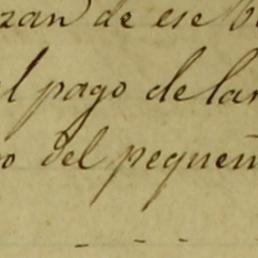 zan de ese b
l pago de las
o del pequeñ